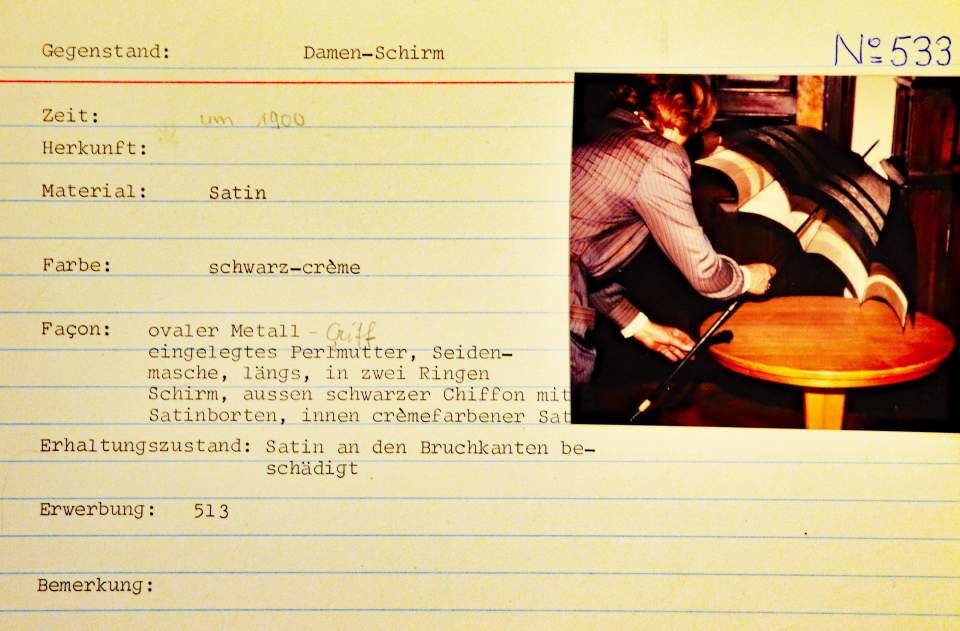 Gegenstand: Damen-Schirm Nº 533
Zeit: um 1900
Herkunft:
Material: Satin
Farbe: schwarz-crème
Façon: ovaler Metall - Griff
eingelegtes Perlmutter, Seiden-
masche, längs, in zwei Ringen
Schirm, aussen schwarzer Chiffon mit
Satinborten, innen crèmefarbener Sat
Erhaltungszustand: Satin an den Bruchkanten be-
schädigt
Erwerbung: 513
Bemerkung: